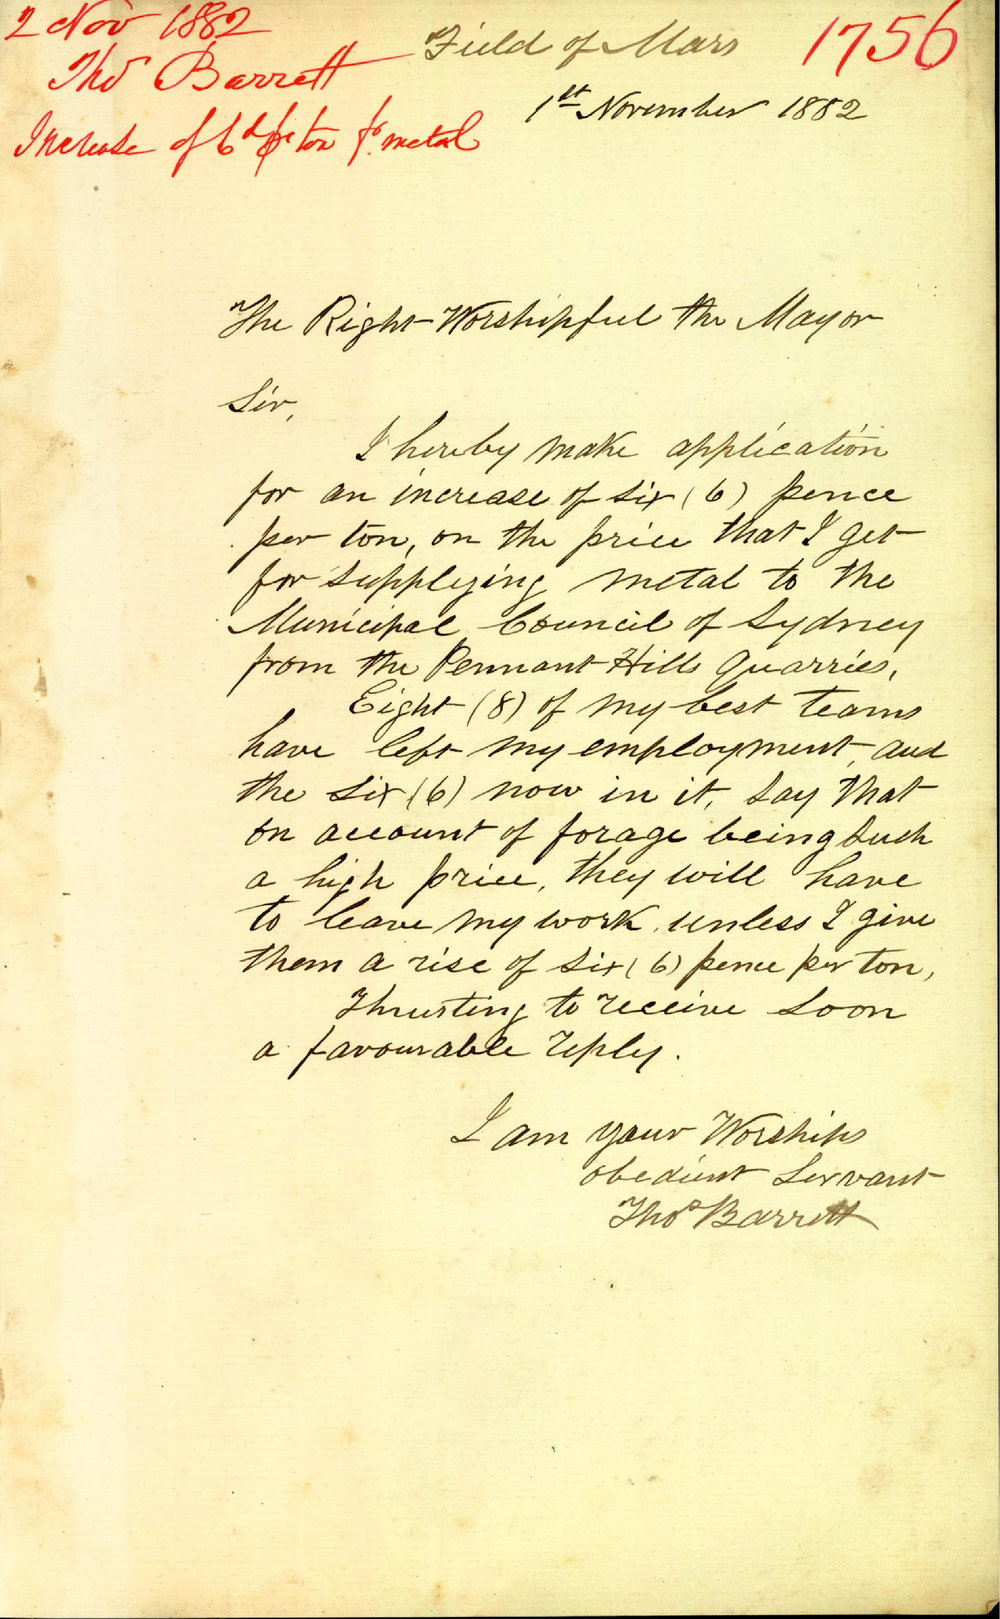 2 Nov 1882
Thos Barrett
Increase of 6d per ton for metal
1756
Field of Mars
1st November 1882
The Right Worshipful the Mayor
Sir,
I hereby make application
for an increase of six (6) pence
per ton, on the price that I get
for supplying metal to the
Municipal Council of Sydney
from the Pennant Hills Quarries.
Eight (8) of my best teams
have left my employment, and
the six (6) now in it, say that
on account of forage being such
a high price, they will have
to leave my work unless I give
them a rise of six (6) pence per ton,
Thrusting to receive soon
a favourable reply.
I am your Worships
obedient Servant
Thos Barrett